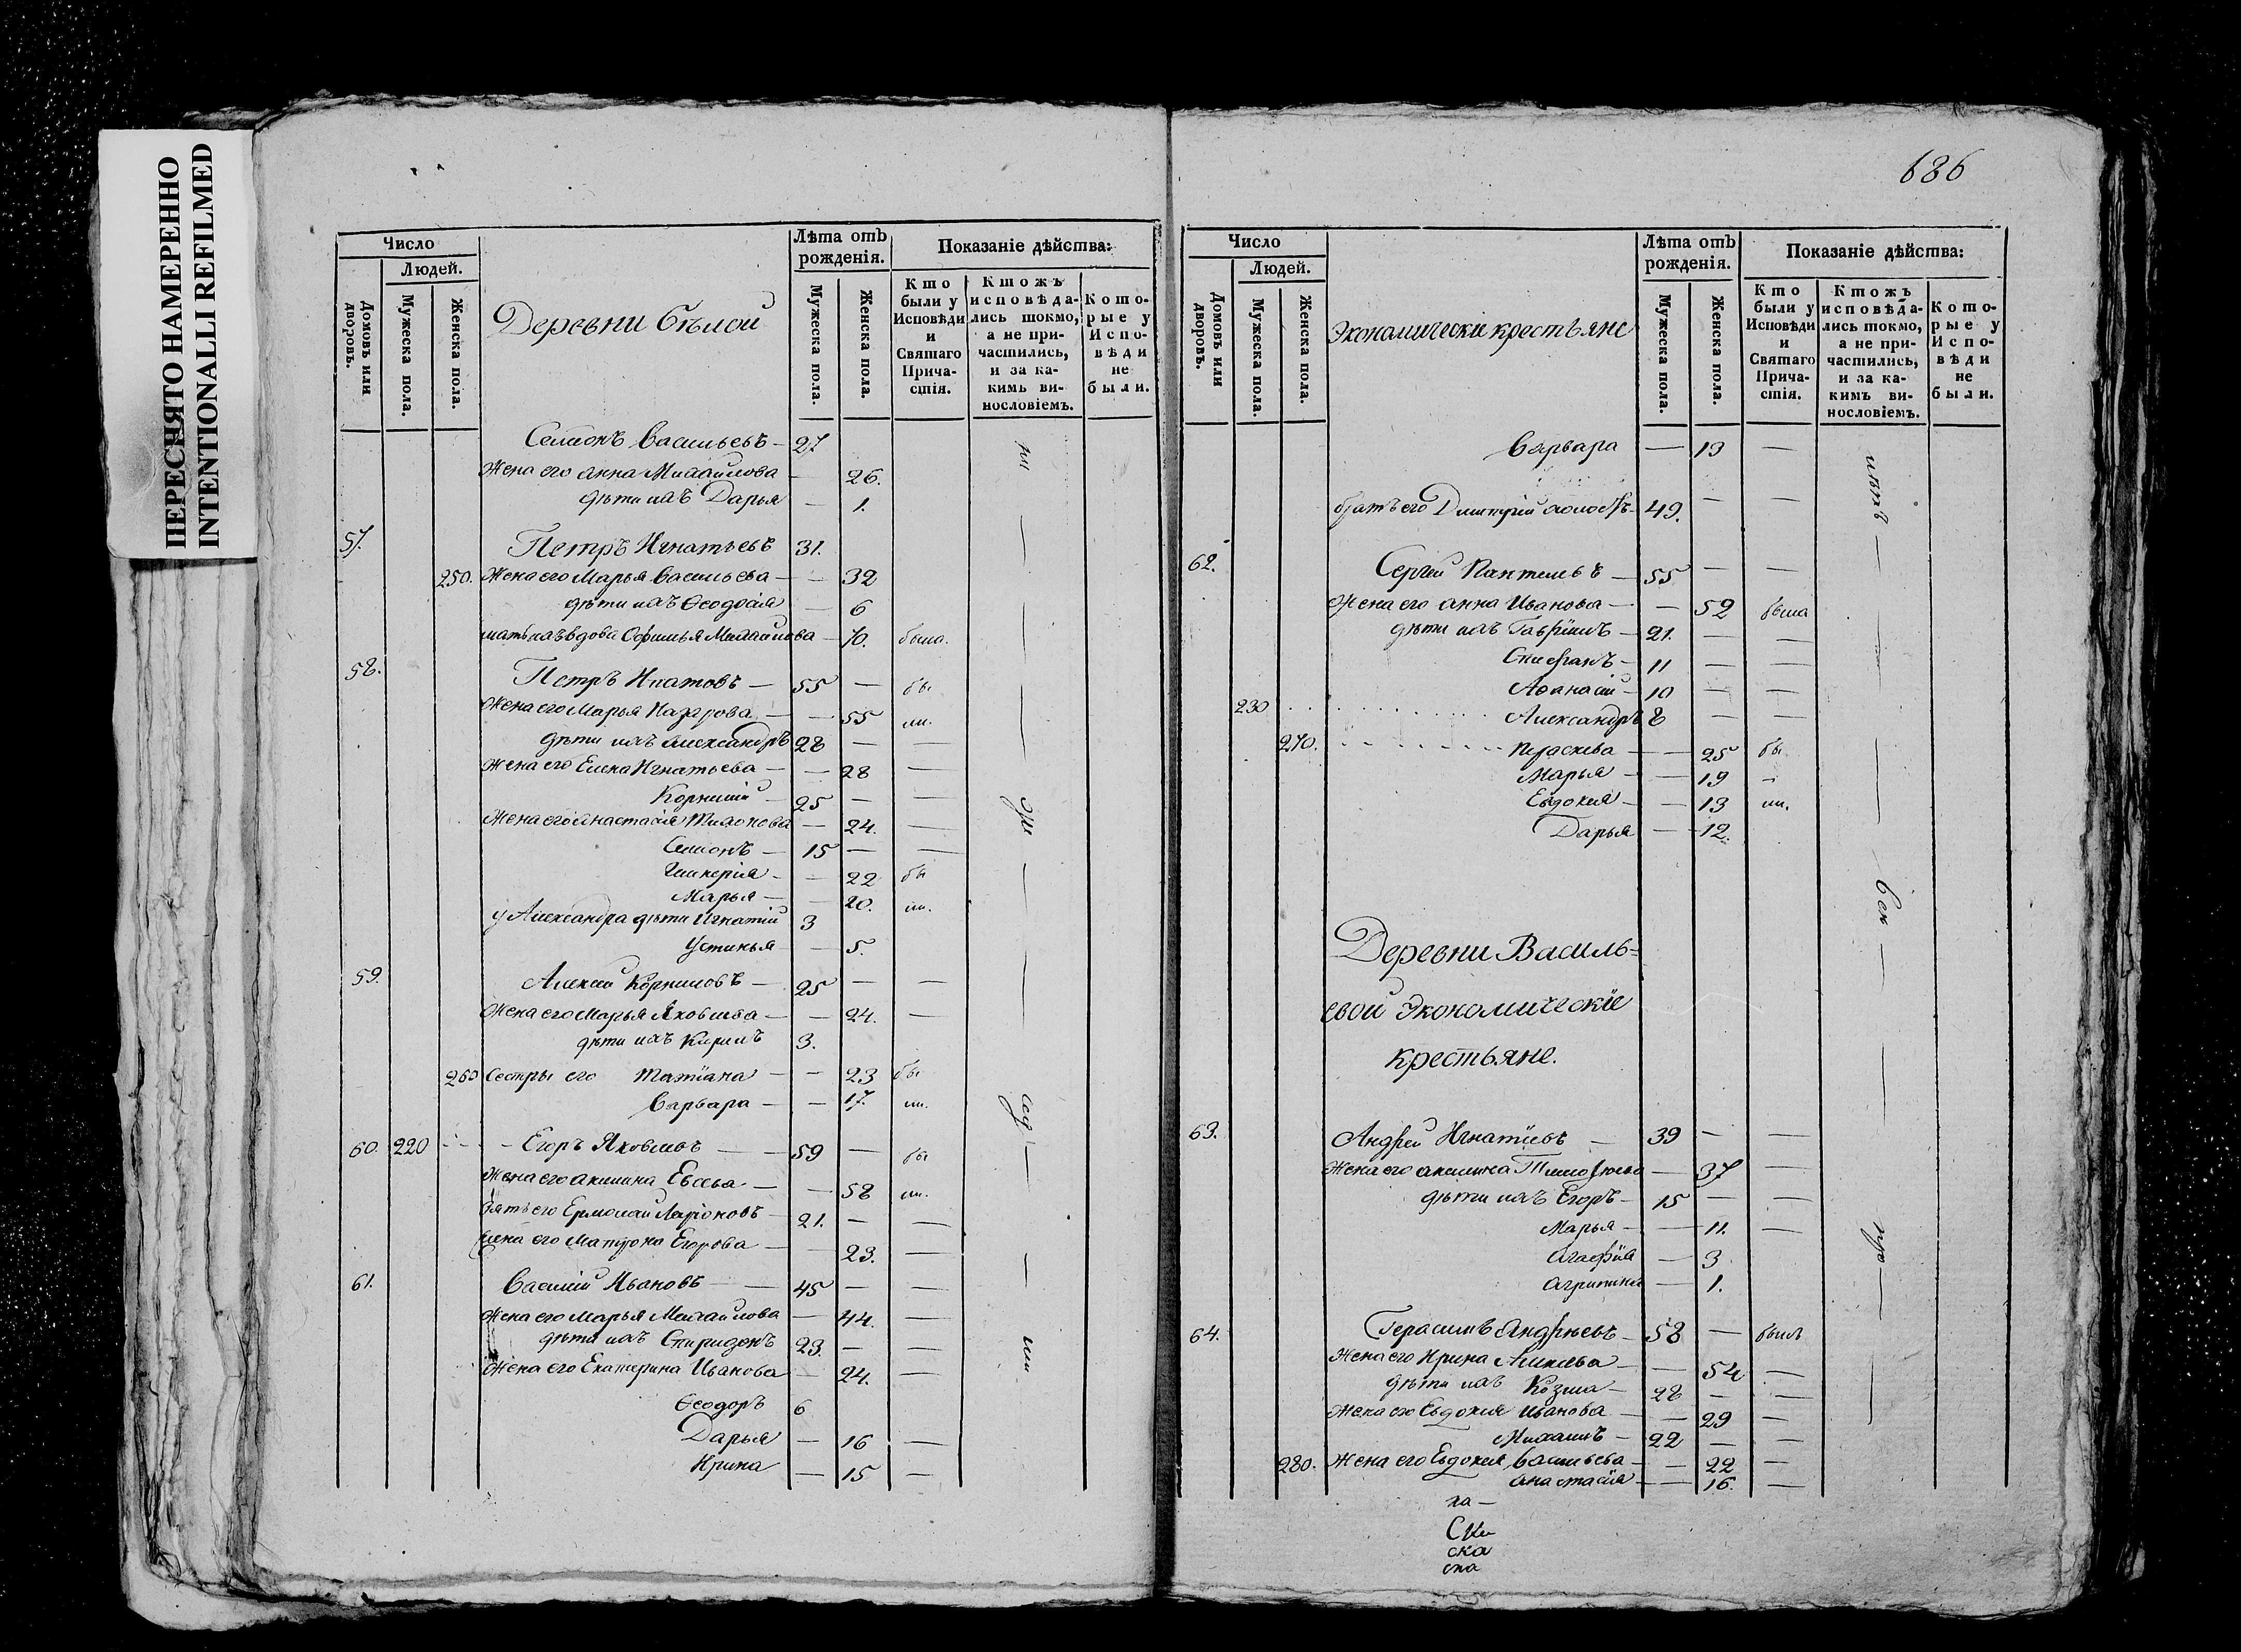 ПЕРЕСНЯТО НАМЕРЕННО
INTENTIONALLI REFILMED
Число
Людей.
Домовъ или дворовъ.
Мужеска пола.
Женска пола.
Деревни Бѣлой
Лѣта отъ рожденія.
Мужеска пола.
Женска пола.
Показаніе дѣйства:
Кто были у Исповѣди и Святаго Причастія.
Ктожъ исповѣдались токмо, а не причастились, и за какимъ винословіемъ.
Которые у Исповѣди не были.
Семіонъ Васильевъ — 27
Жена его Анна Михайлова — 26.
дѣти ихъ Дарья — 1.
57. Петръ Игнатьевъ 31.
250. Жена его Марья Васильева — — 32
дѣти ихъ Ѳеодосія — 6
мать ихъ вдова Офимья Михайлова — 70. была.
58. Петръ Ипатовъ — 55 — бы
Жена его Марья Назарова — — 55 ли.
дѣти ихъ Александръ 28 — —
Жена его Елена Игнатьева — — 28 —
Корнилій — 25 — —
Жена его Анастасія Тихонова — 24. —
Семіонъ — 15 — —
Гликерія — — 22 бы
Марья — — 20. ли.
у Александра дѣти Игнатій 3
Устинья — 5.
59. Алексѣй Корниловъ — 25 — —
Жена его Марья Яковлева — — 24. —
дѣти ихъ Кирилъ 3.
260 Сестры его Татіана — — 23 бы
Варвара — — 17. ли.
60. 220 Егоръ Яковлевъ — 59 — бы
Жена его Акилина Евсеева — — 58 ли.
Зять его Ермолай Ларіоновъ — 21. — —
Жена его Матрона Егорова — — 23. —
61. Василій Ивановъ — 45 — —
Жена его Марья Михайлова — 44. —
дѣти ихъ Спиридонъ 23. — —
Жена его Екатерина Иванова — 24. —
Ѳеодоръ 6
Дарья — 16 —
Ирина — 15 —
686
Число
Людей.
Домовъ или дворовъ.
Мужеска пола.
Женска пола.
Экономически крестьяне
Лѣта отъ рожденія.
Мужеска пола.
Женска пола.
Показаніе дѣйства:
Кто были у Исповѣди и Святаго Причастія.
Ктожъ исповѣдались токмо, а не причастились, и за какимъ винословіемъ.
Которые у Исповѣди не были.
Варвара — 13 —
братъ его Димитрій холостъ — 49. — —
62. Сергѣй Пантелевъ — 55 — —
Жена его Анна Иванова — — 52 была
дѣти ихъ Гаврiилъ — 21. — —
Стефанъ — 11 — —
Аѳанасій — 10 — —
230 Александръ 8 — —
270. Параскева — — 25 бы
Марья — — 19 —
Евдокия — — 13 ли.
Дарья — — 12.
Деревни Василь=
евой Экономическіе
крестьяне.
63. Андрей Игнатіевъ — 39 — —
Жена его Акилина Тимофѣева — 37 —
дѣти ихъ Егоръ — 15 — —
Марья — — 11. —
Агафiя — 3
Агрипина — 1.
64. Герасимъ Андрѣевъ — 58 — былъ
Жена его Ирина Алексѣева — — 54 —
дѣти ихъ Козма — 28 — —
Жена его Евдокия Иванова — — 29 —
Михаилъ — 22 — —
280. Жена его Евдокия Васильева — — 22 —
Анастасія — — 16. —